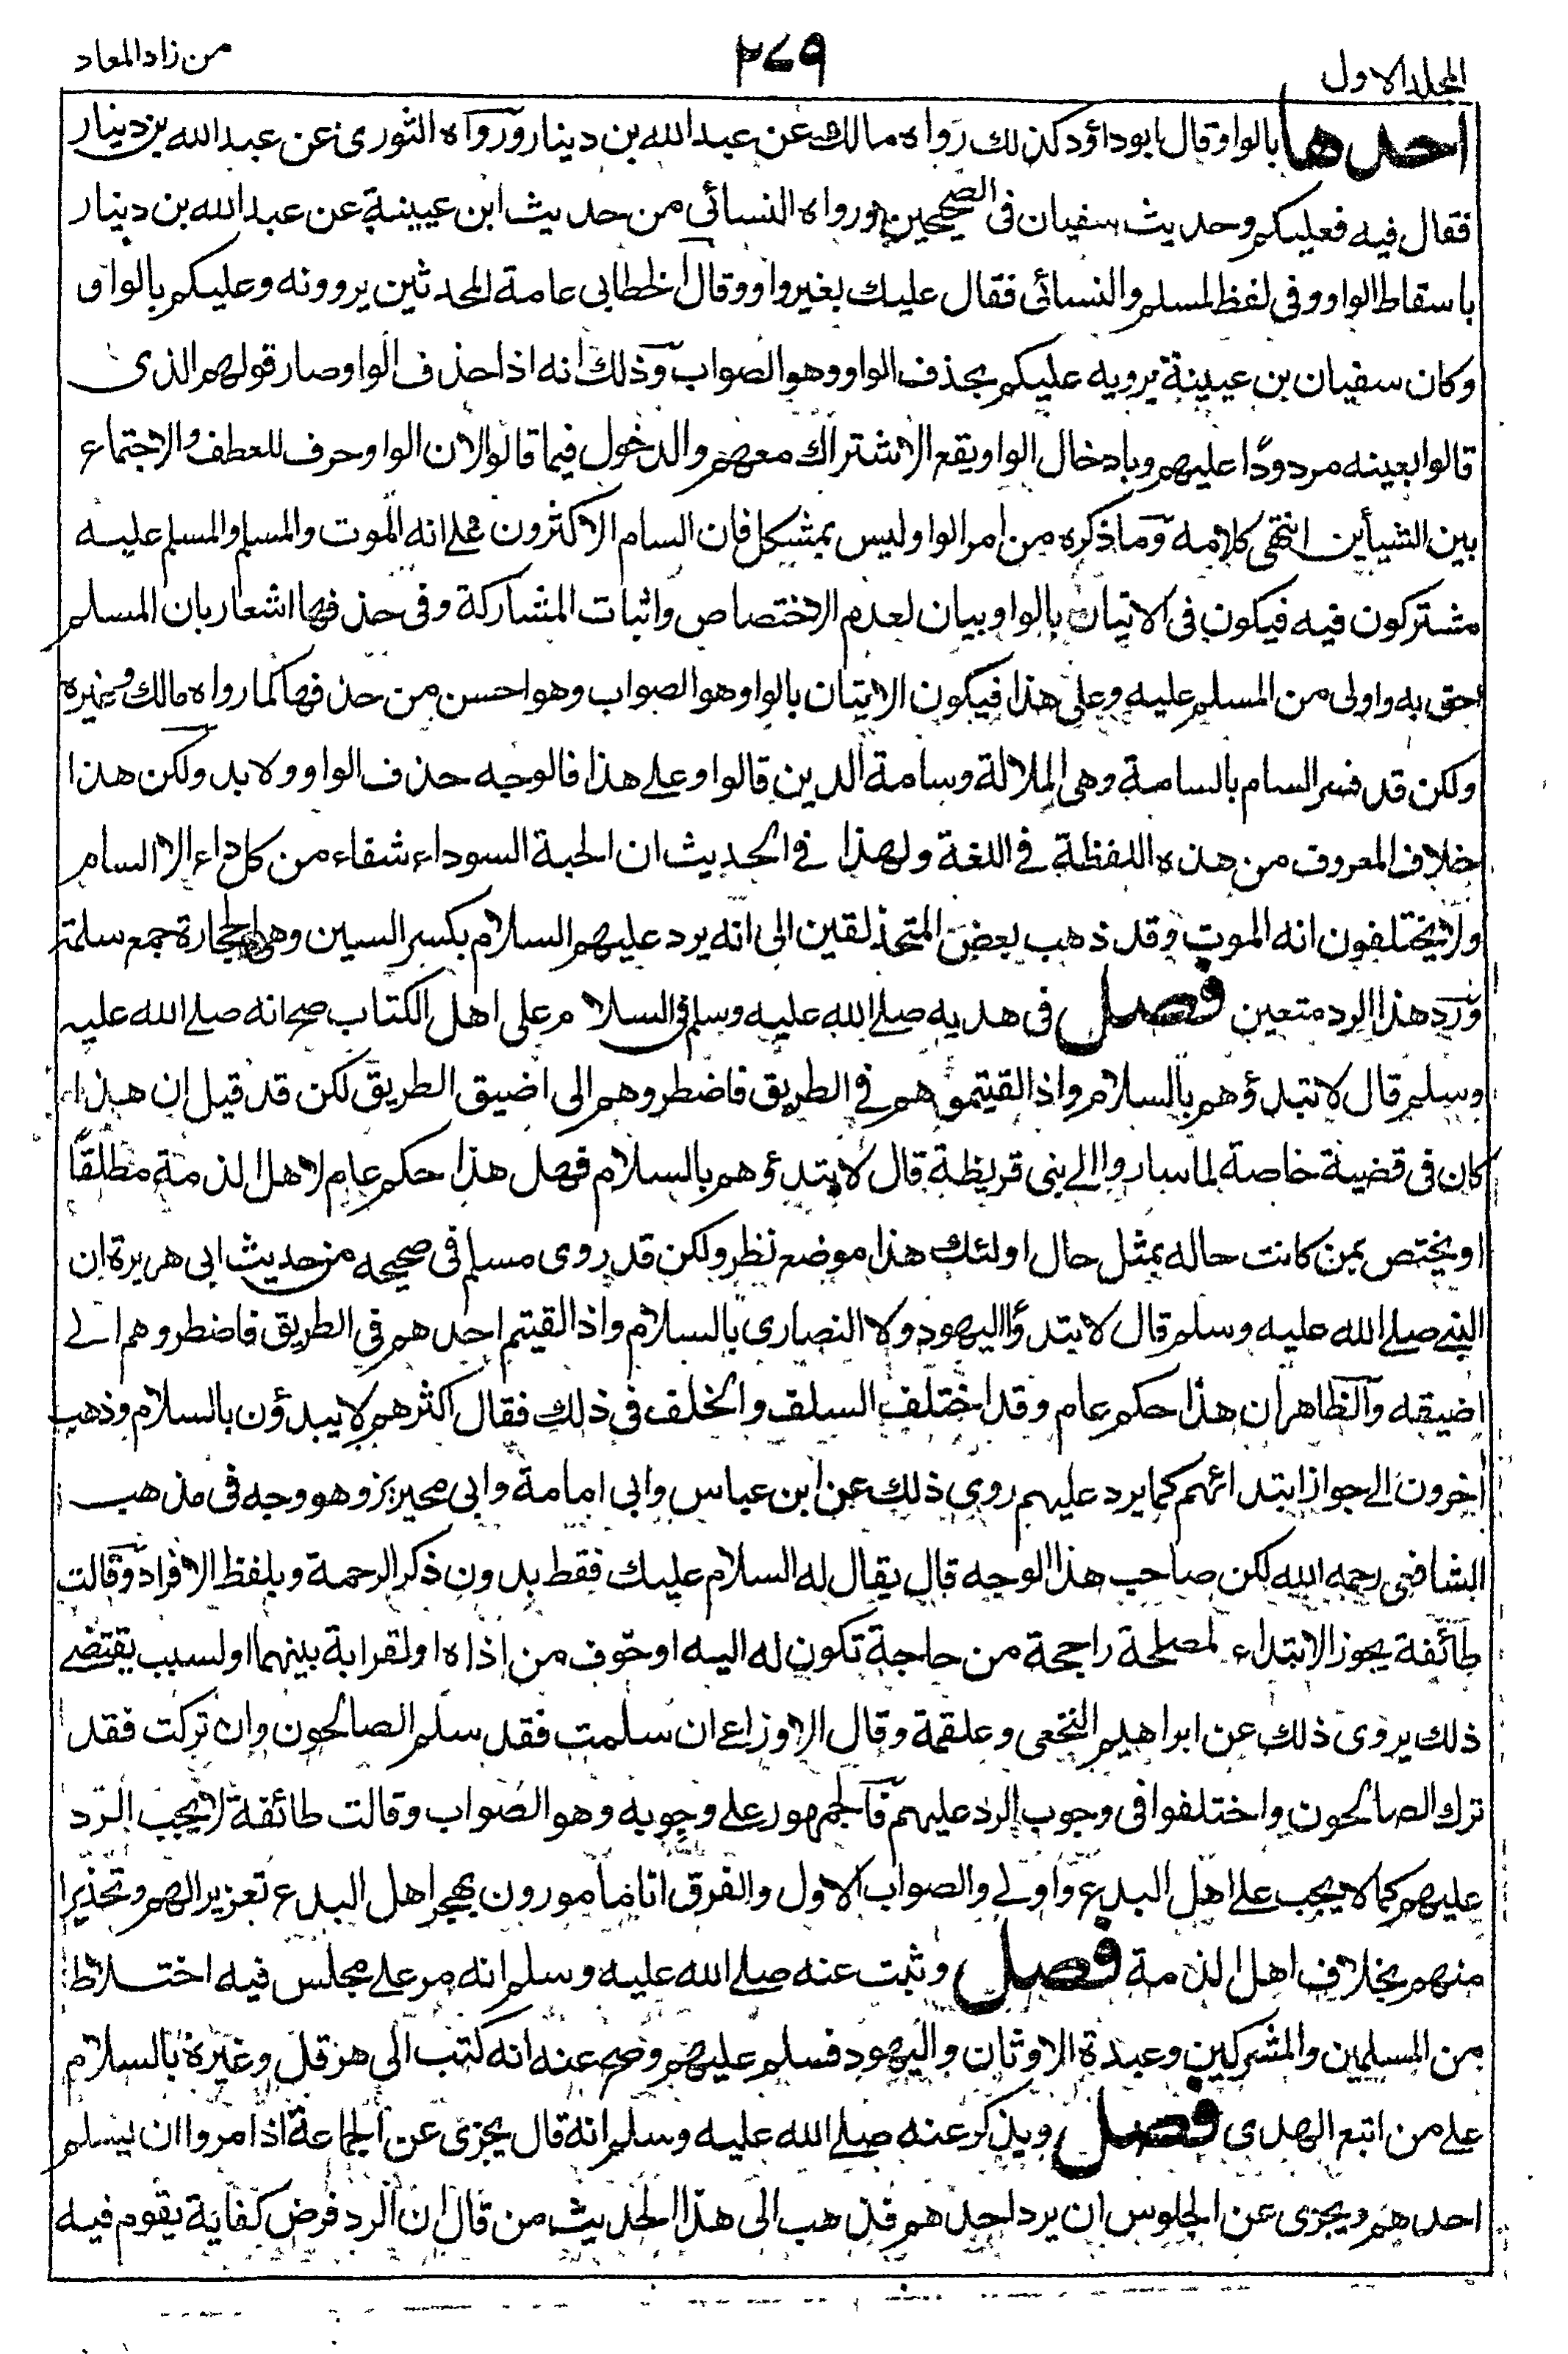 المجلد الاول
٢٧٩
من زاد المعاد
احدها بالواو وقال ابوداؤد كذلك رواه مالك عن عبد الله بن دينار ورواه الثوري عن عبد الله بن دينار
فقال فيه فعليكم وحديث سفيان فى الصحيحين ورواه النسائى من حديث ابن عيينة عن عبد الله بن دينار
باسقاط الواو وفى لفظ لمسلم والنسائى فقال عليك بغير واو وقال الخطابى عامة المحدثين يروونه وعليكم بالواو
وكان سفيان بن عيينة يرويه عليكم بحذف الواو وهو الصواب وذلك انه اذا حذف الواو صار قولهم الذى
قالوا بعينه مردودًا عليهم وبادخال الواو يقع الاشتراك معهم والدخول فيما قالوا لان الواو حرف للعطف والاجتماع
بين الشيأين انتهى كلامه وما ذكره من امر الواو ليس بمشكل فان السام الاكثرون على انه الموت والمسلم والمسلم عليه
مشتركون فيه فيكون فى الاتيان بالواو بيان لعدم الاختصاص واثبات المشاركة وفى حذفها اشعار بان المسلم
احق به واولى من المسلم عليه وعلى هذا فيكون الاتيان بالواو وهو الصواب وهو احسن من حذفها كما رواه مالك وغيره
ولكن قد فسر السام بالسامة وهى الملالة وسامة الدين قالوا وعلى هذا فالوجه حذف الواو ولا بد ولكن هذا
خلاف المعروف من هذه اللفظة فى اللغة ولهذا فى الحديث ان الحبة السوداء شفاء من كل داء الا السام
ولا يختلفون انه الموت وقد ذهب بعض المتحذلقين الى انه يرد عليهم السلام بكسر السين وهى الحجارة جمع سلمة
ورد هذا الرد متعين فصل فى هديه صلى الله عليه وسلم فى السلام على اهل الكتاب صح انه صلى الله عليه
وسلم قال لا تبدؤهم بالسلام واذا لقيتموهم فى الطريق فاضطروهم الى اضيق الطريق لكن قد قيل ان هذا
كان فى قضية خاصة لما ساروا الى بنى قريظة قال لا تبدؤهم بالسلام فهل هذا حكم عام لاهل الذمة مطلقًا
او يختص بمن كانت حاله بمثل حال اولئك هذا موضع نظر ولكن قد روى مسلم فى صحيحه من حديث ابى هريرة ان
النبى صلى الله عليه وسلم قال لا تبدؤا اليهود ولا النصارى بالسلام واذا لقيتم احدهم فى الطريق فاضطروهم الى
اضيقه والظاهر ان هذا حكم عام وقد اختلف السلف والخلف فى ذلك فقال اكثرهم لا يبدؤن بالسلام وذهب
اخرون الى جواز ابتدائهم كما يرد عليهم روى ذلك عن ابن عباس وابى امامة وابى محيريز وهو وجه فى مذهب
الشافعى رحمه الله لكن صاحب هذا الوجه قال يقال له السلام عليك فقط بدون ذكر الرحمة وبلفظ الافراد وقالت
طائفة يجوز الابتداء لمصلحة راجحة من حاجة تكون له اليه او خوف من اذاه او لقرابة بينهما او لسبب يقتضى
ذلك يروى ذلك عن ابراهيم النخعى وعلقمة وقال الاوزاعى ان سلمت فقد سلم الصالحون وان تركت فقد
ترك الصالحون واختلفوا فى وجوب الرد عليهم فالجمهور على وجوبه وهو الصواب وقالت طائفة لا يجب الرد
عليهم كما لا يجب على اهل البدع واولى والصواب الاول والفرق انا مامورون بهجر اهل البدع تعزيرا لهم وتحذيرا
منهم بخلاف اهل الذمة فصل وثبت عنه صلى الله عليه وسلم انه مر على مجلس فيه اختلاط
من المسلمين والمشركين وعبدة الاوثان واليهود فسلم عليهم وصح عنه انه كتب الى هرقل وغيره بالسلام
على من اتبع الهدى فصل ويذكر عنه صلى الله عليه وسلم انه قال يجزى عن الجماعة اذا مروا ان يسلم
احدهم ويجزى عن الجلوس ان يرد احدهم فذهب الى هذا الحديث من قال ان الرد فرض كفاية يقوم فيه